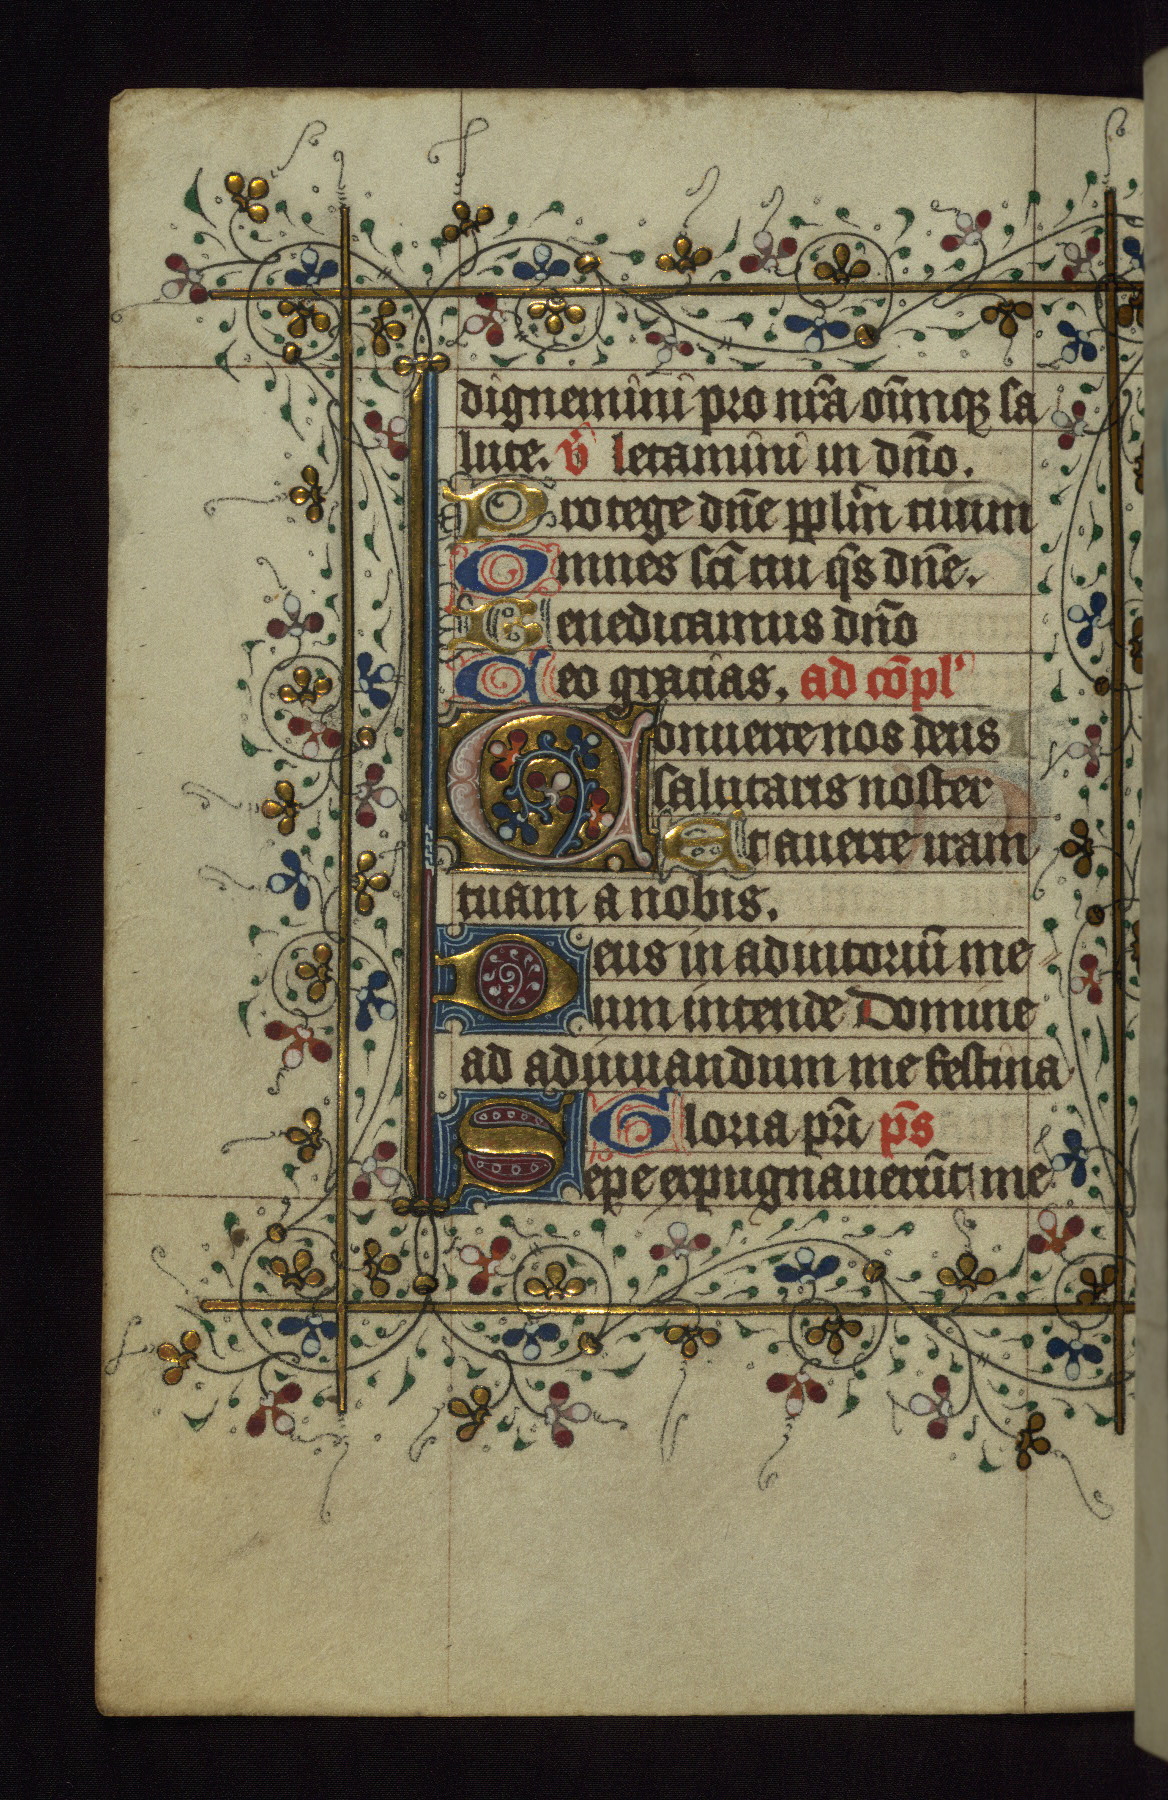 dignemini pro nr̃a oĩmq₃ sa
lute. v̄ letamini in dño.
Protege dñe pplm̃ tuum
Omnes scĩ tui q̃s dñe.
Benedicamus dño
Deo gracias. ad cõpl'
Conuerte nos deus
salutaris noster
Et auerte iram
tuam a nobis.
Deus in adiutoriũ me
um intende Domine
ad adiuuandum me festina
Gloria pr̃i p̃s
Sepe expugnauerũt me